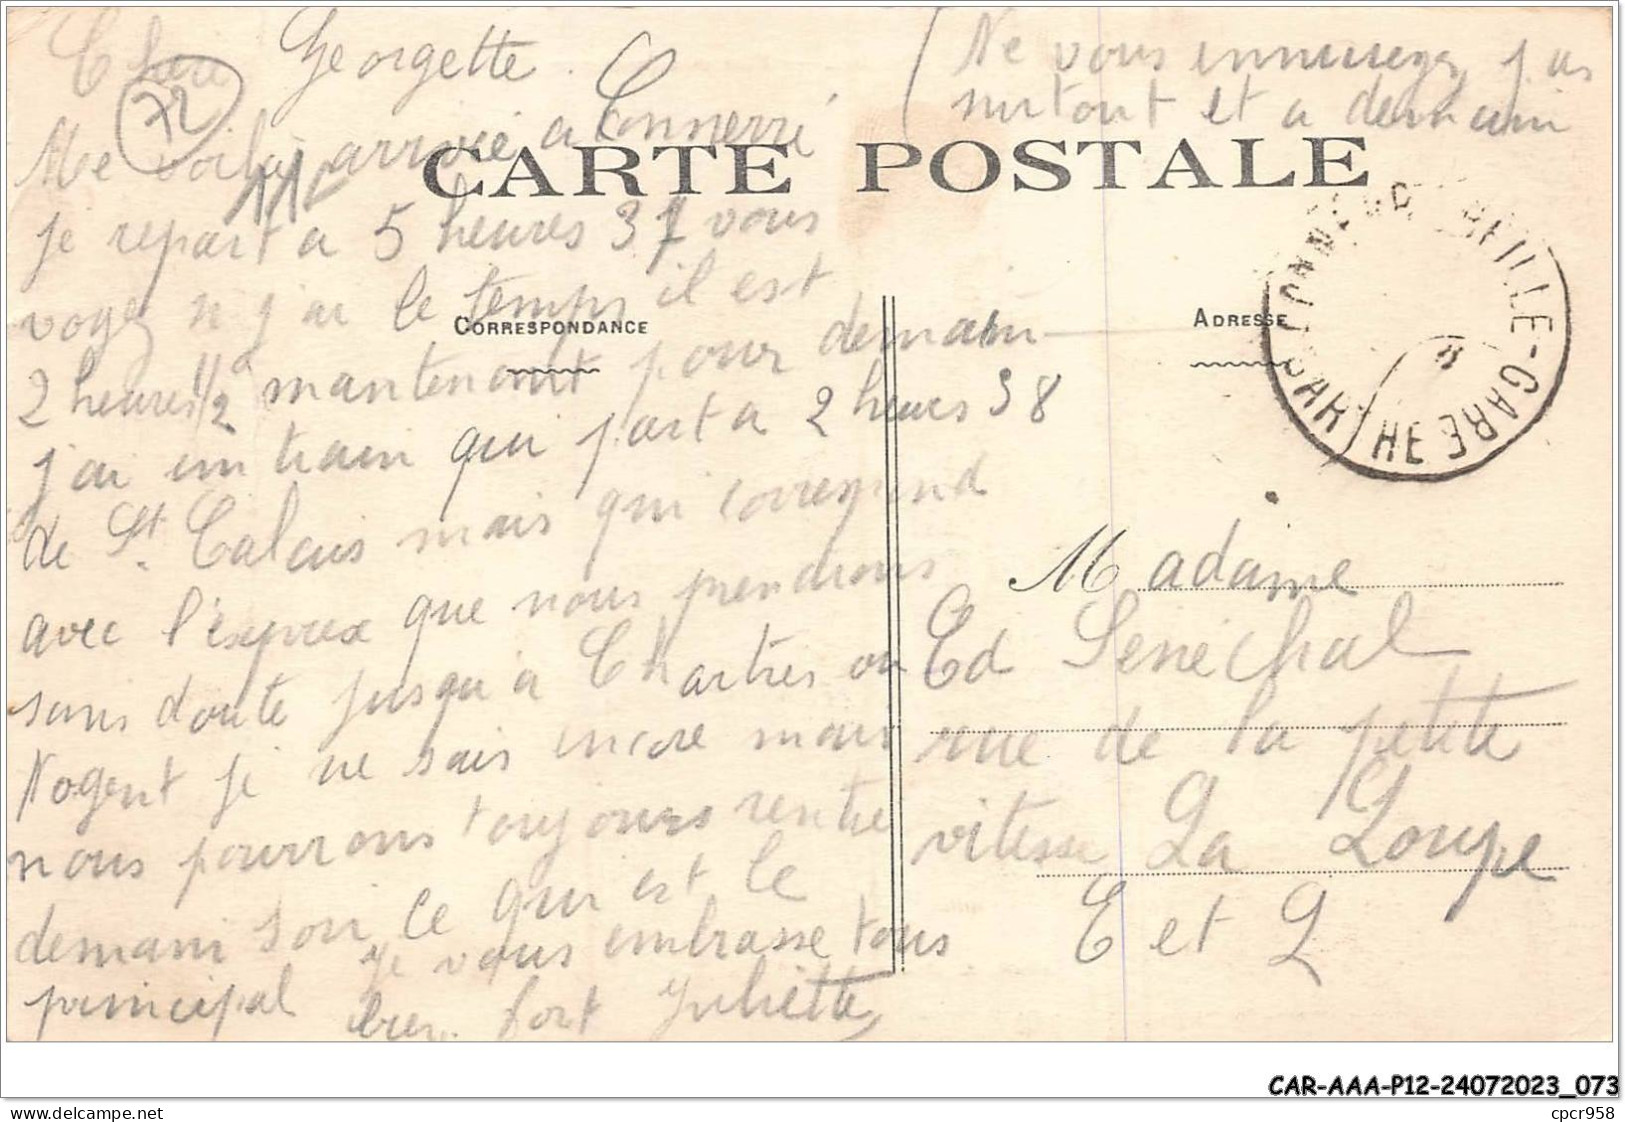 Chère Georgette.
Me voilà arrivée a Connerré
je repart a 5 heures 37 vous
voyez si j'ai le temps il est
2 heures 1/2 mantenant pour demain
j'ai un train qui part a 2 heures 38
de St. Calais mais qui correspond
avec l'express que nous prendrons
sans doute jusqu'à Chartres ou
Nogent je ne sais encore mais
nous pourrons toujours rentre
demain soir ce qui est le
principal je vous embrasse tous
bien fort Juliette
Ne vous ennuieyez pas
surtout et a demain
72
11-
CARTE POSTALE
CORRESPONDANCE
ADRESSE
BEILLE-GARE
SARTHE
Madame
Ed Senechal
rue de la petite
vitesse La Loupe
E et L
CAR-AAA-P12-24072023_073
delcampe.net
cpcr958